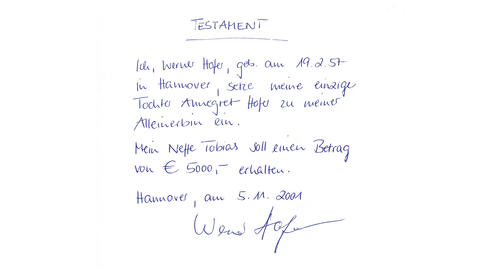 TESTAMENT
Ich, Werner Hofer, geb. am 19.2.57
in Hannover, setze meine einzige
Tochter Annegret Hofer zu meiner
Alleinerbin ein.
Mein Neffe Tobias soll einen Betrag
von € 5000,- erhalten.
Hannover, am 5.11.2001
Werner Hofer